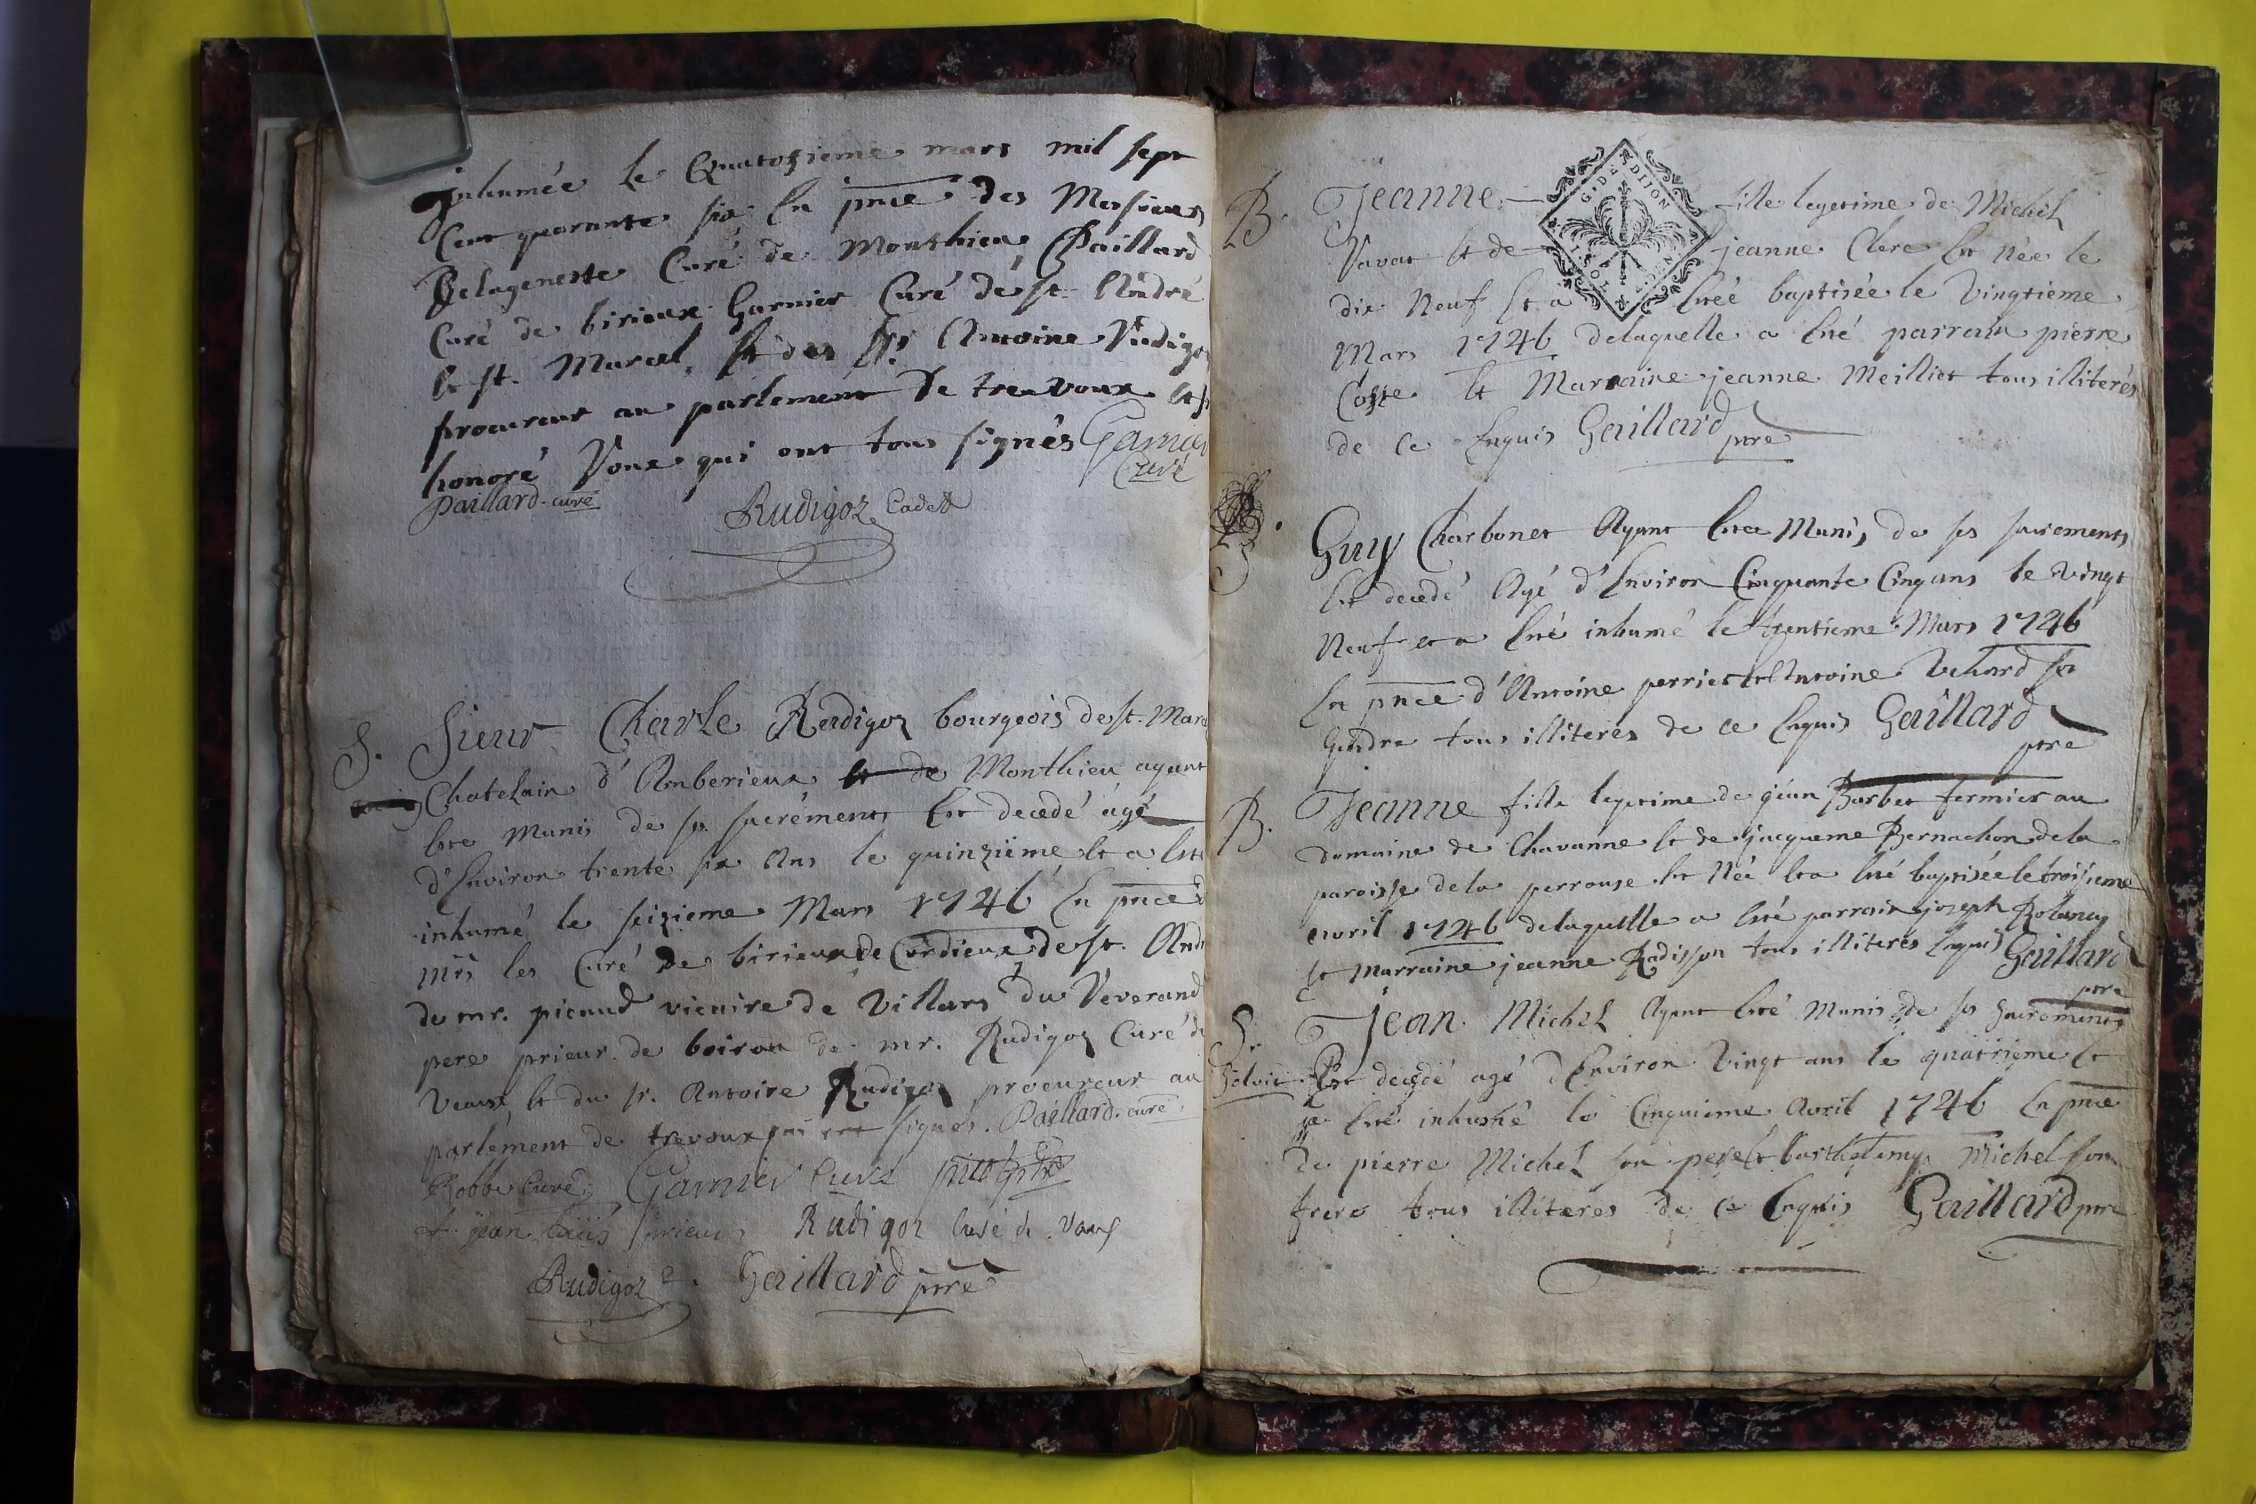 inhumée le Quatorzieme mars mil sept
Cent quarante six En pnce des Messieurs
Delageneste Curé de Monthieu, Paillard
Curé de birieux Garnier Curé de st. André
et st. Marcel, et des Srs. Antoine Rudigoz
procureur au parlement de trevoux et
honoré Voux qui ont tous signés Garnier
Curé
Paillard curé
Rudigoz Cadet
S. Sieur Charle Rudigoz bourgeois de st. Marcel
Chatelain d'Amberieux et de Monthieu ayant
ete Munis de ses sacréments Est decedé agé
d'Environ trente six Ans le quinzième et a eté
inhumé le seizieme Mars 1746 En pnce de
mrs les Curé de birieux de Cordieux de st. André
de mr. picaud vicaire de Villars du Reverand
pere prieur de de mr. Rudigoz Curé de
Vaux et du sr. Antoire Rudigoz procureur au
parlement de trevoux qui ont signés. Paillard. curé
Curé Garnier Curé
jean prieur Rudigoz Curé de Vaux
Rudigoz Gaillard ptre
B. Jeanne fille legetime de Michel
G. DE DIJON
Vavat Et de jeanne Clere Est Née le
dix Neuf Et a Eteé baptisée le Vingtieme
Mars 1746 delaquelle a Eté parrain pierre
Coste Et Marraine jeanne Meillet tous illiterés
de ce Enquis Gaillard
ptre
S
Guy Charbonet Ayant Etee Munis de ses sacrements
Est decedé Agé d'Environ Cinquante Cinq ans le vingt
Neuf et a Eté inhumé le trentieme Mars 1746
En pnce d'Antoine perrier et Antoine Vehard son
Gendre tous illiterés de ce Enquis Gaillard
ptre
B. Jeanne fille legetime de gean Barbet fermier au
domaine de Chavanne Et de jacqueme Bernachon de la
paroisse de la perrouse Est Née Et a Eté baptisée le troisieme
avril 1746 delaquelle a Eté parrain joseph
Et Marraine jeanne Radisson tous illiterés Enquis Gaillard
ptre
S. Jean Michel Ayant Eté Munis de ses Sacrements
Solvit Est decedé agé d'Environ Vingt ans le quatrieme Et
a Eté inhumé le Cinquieme Avril 1746 En pnce
de pierre Michel son pere Et Barthelemy Michel son
frere tous illiteres de ce Enquis Gaillard ptre